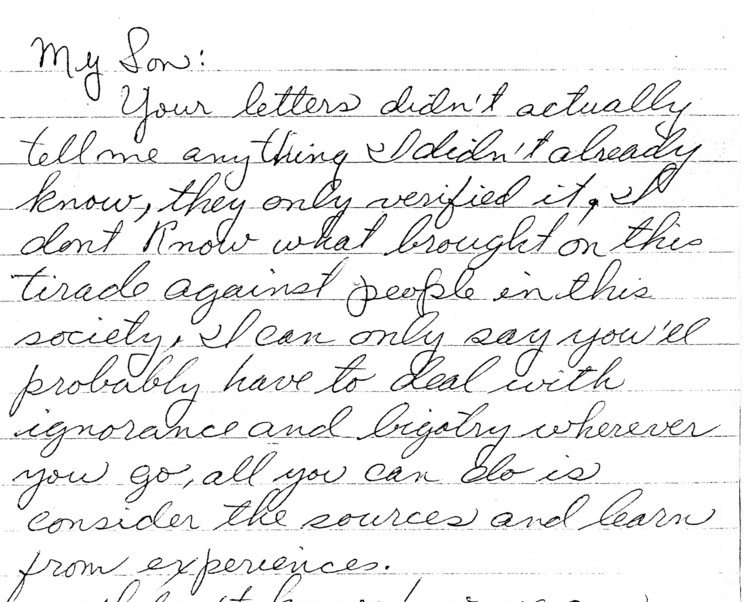 My Son:
Your letters didn't actually
tell me anything I didn't already
know, they only verified it. I
dont know what brought on this
tirade against people in this
society. I can only say you'll
probably have to deal with
ignorance and bigotry wherever
you go, all you can do is
consider the sources and learn
from experiences.